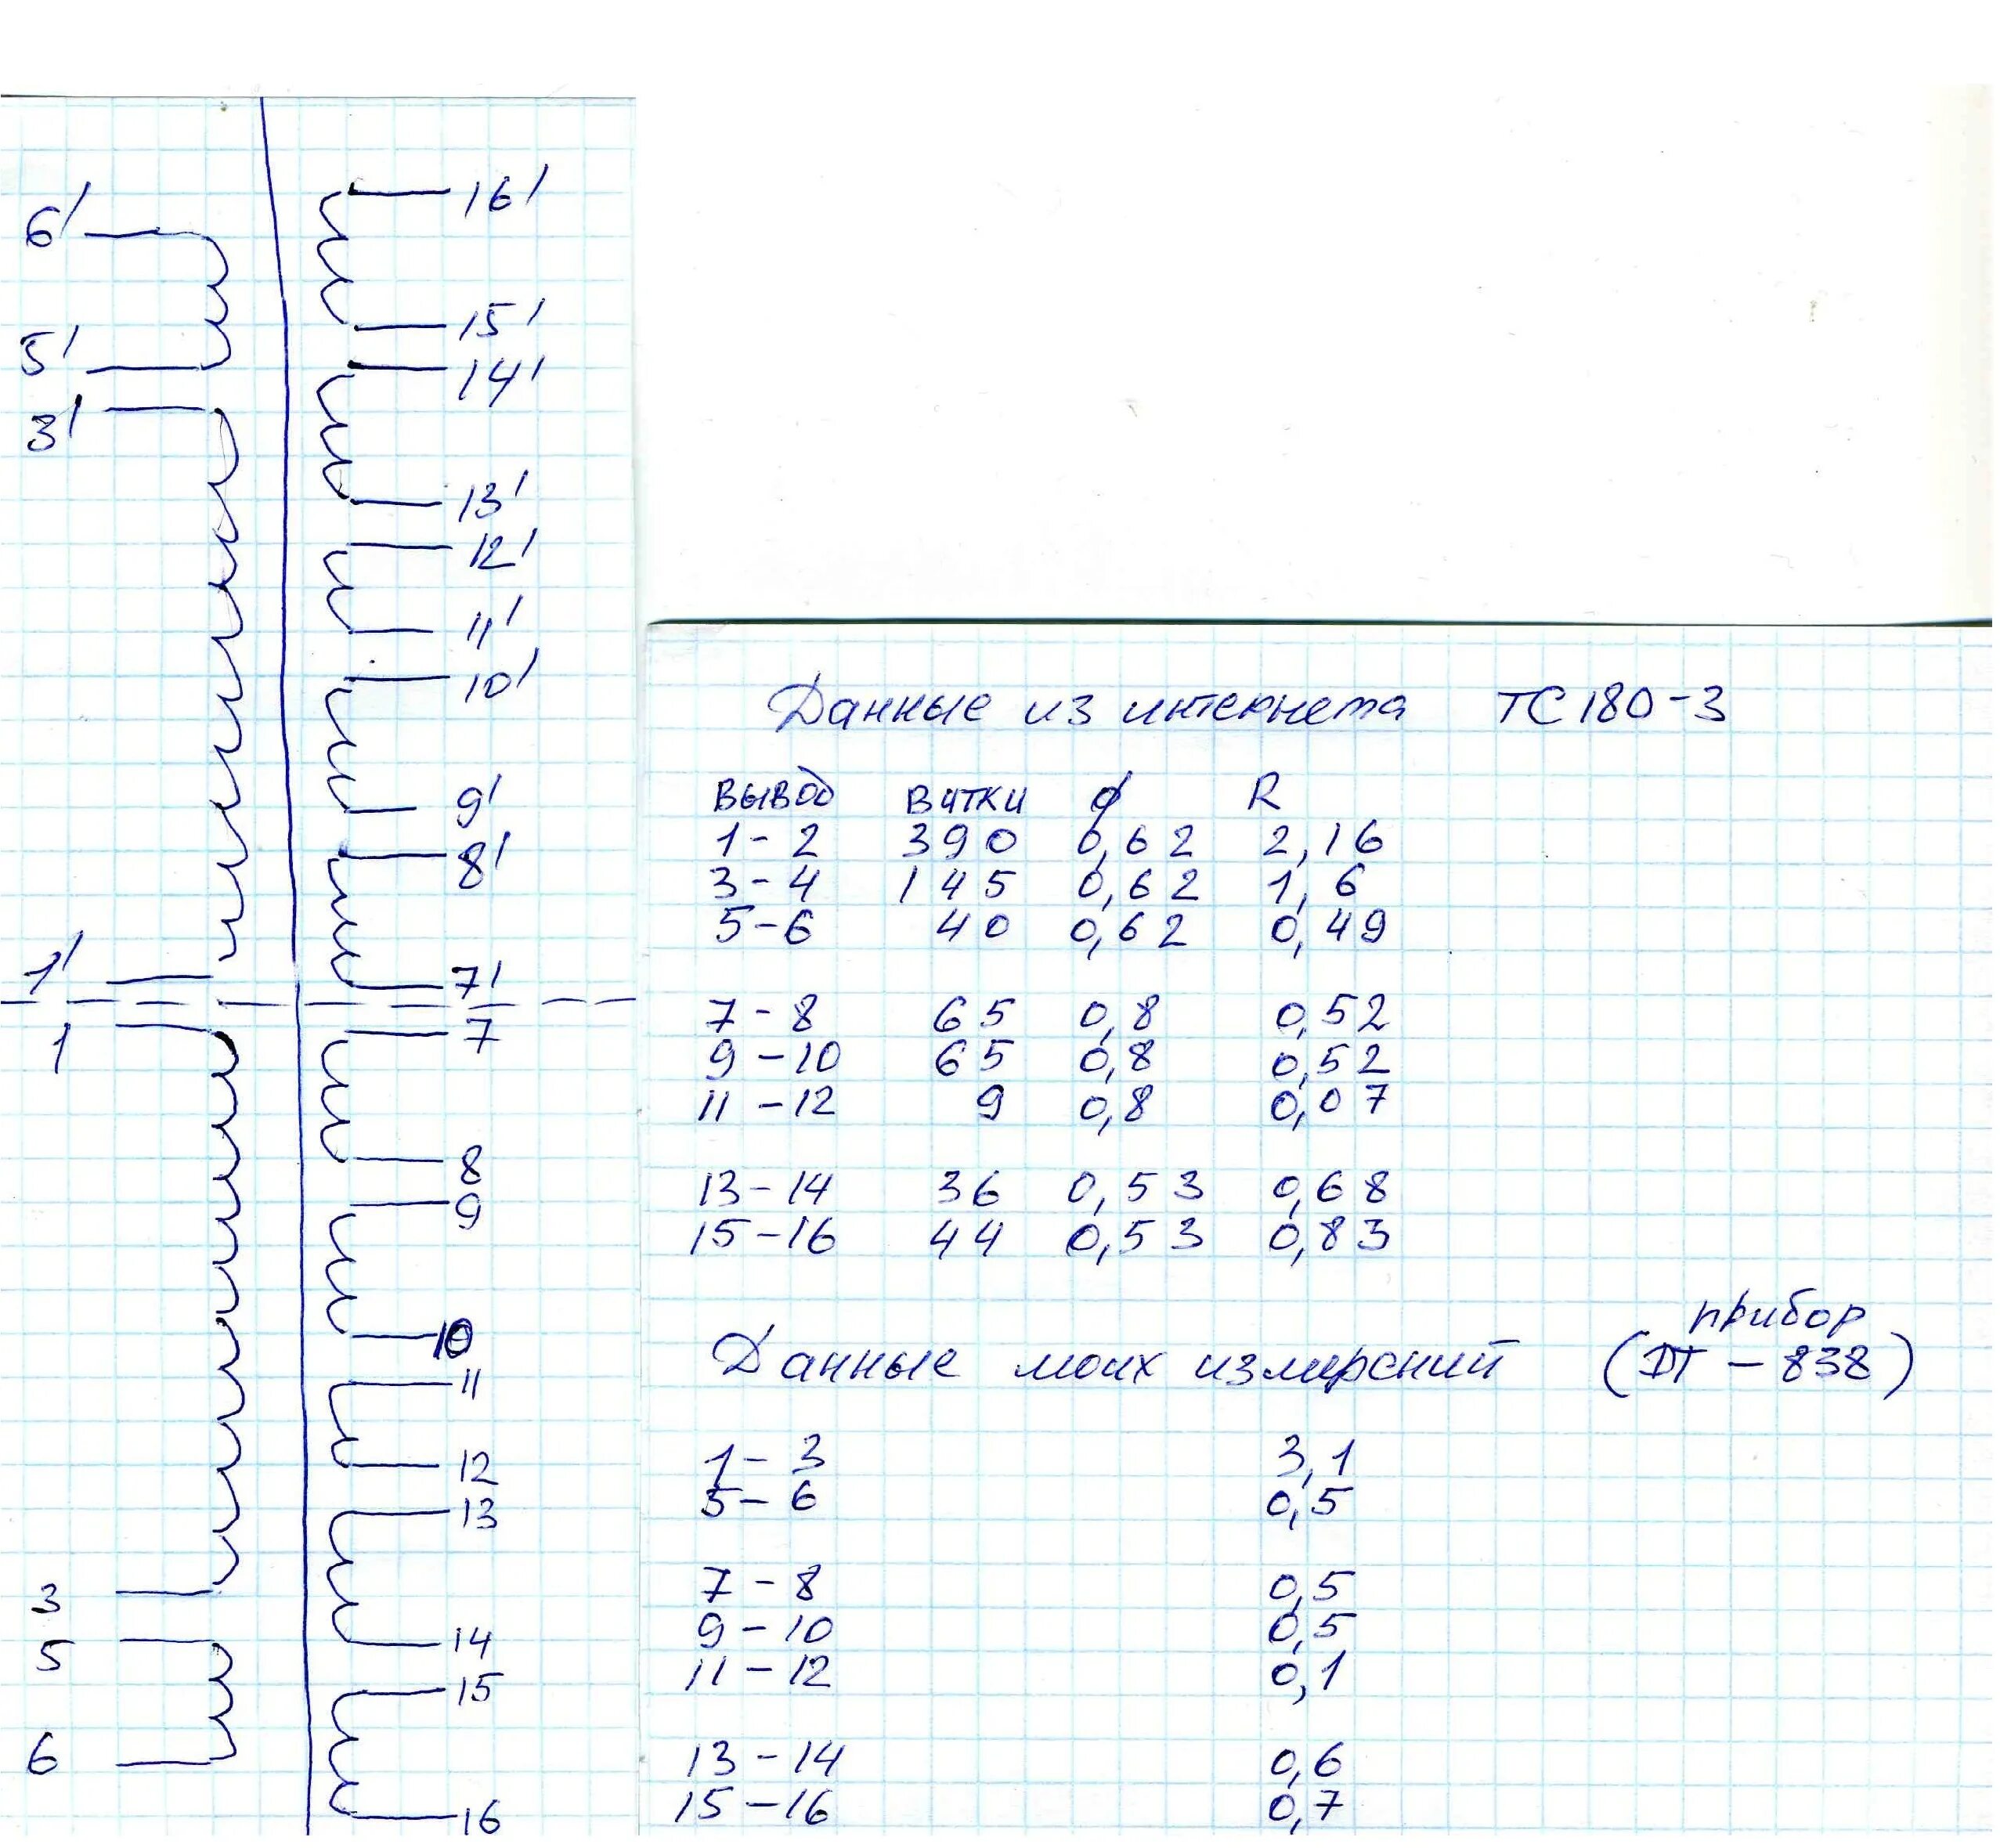 6'
16'
5'
15'
3'
14'
13'
12'
11'
10'
9'
8'
1'
7'
1
7
8
9
10
11
12
13
3
5
14
15
6
16
Данные из интернета ТС180-3
вывод витки ϕ R
1-2 390 0,62 2,16
3-4 145 0,62 1,6
5-6 40 0,62 0,49
7-8 65 0,8 0,52
9-10 65 0,8 0,52
11-12 9 0,8 0,07
13-14 36 0,53 0,68
15-16 44 0,53 0,83
прибор
Данные моих измерений (DT-838)
1-3 3,1
5-6 0,5
7-8 0,5
9-10 0,5
11-12 0,1
13-14 0,6
15-16 0,7